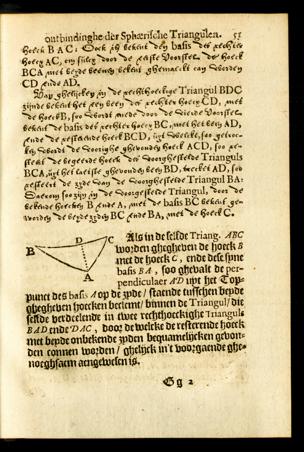 ontbindinghe der Sphærische Triangulen. 53
hoeck B A C: Oock is bekent den basis der rechter
hoeck AC, om sulcx door de eerste Voorstel, de hoeck
BCA met beyde beenen bekent ghemaeckt can worden
CD ende AD.
Van ghelijcken in de rechthoeckige Triangul BDC
zijnde bekent het een been der rechter hoeck CD, met
de hoeck B, soo wordt mede door de vierde Voorstel
bekent de basis der rechter hoeck BC, met het been BD,
ende de resterende hoeck BCD, uyt welcke, soo getroc-
ken wordt de voorighe ghevonden hoeck ACD, soo re-
steert de begeerde hoeck der voorghestelde Trianguls
BCA, uyt het laetste ghevonden been BD, trecket AD, soo
resteert de zyde van de voorghestelde Triangul BA:
Daerom soo zijn in de voorgestelde Triangul, door de
bekende hoecken B ende A, met de basis BC bekent ge-
worden de beyde zyden BC ende BA, met de hoeck C.
B D C
A
Als in de selfde Triang. ABC
worden ghegheven de hoeck B
met de hoeck C, ende dese syne
basis BA, soo ghevalt de per-
pendiculaer AD uyt het Top-
punct des basis A op de zyde / staende tusschen beyde
ghegheven hoecken bectent / binnen de Triangul / die
selfde verdeelende in twee rechthoeckighe Trianguls
BAD ende DAC, door de welcke de resterende hoeck
met beyde onbekende zyden bequamelijcken gevon-
den connen worden / ghelijck in't voorgaende ghe-
noeghsaem aengewesen is.
Gg 2